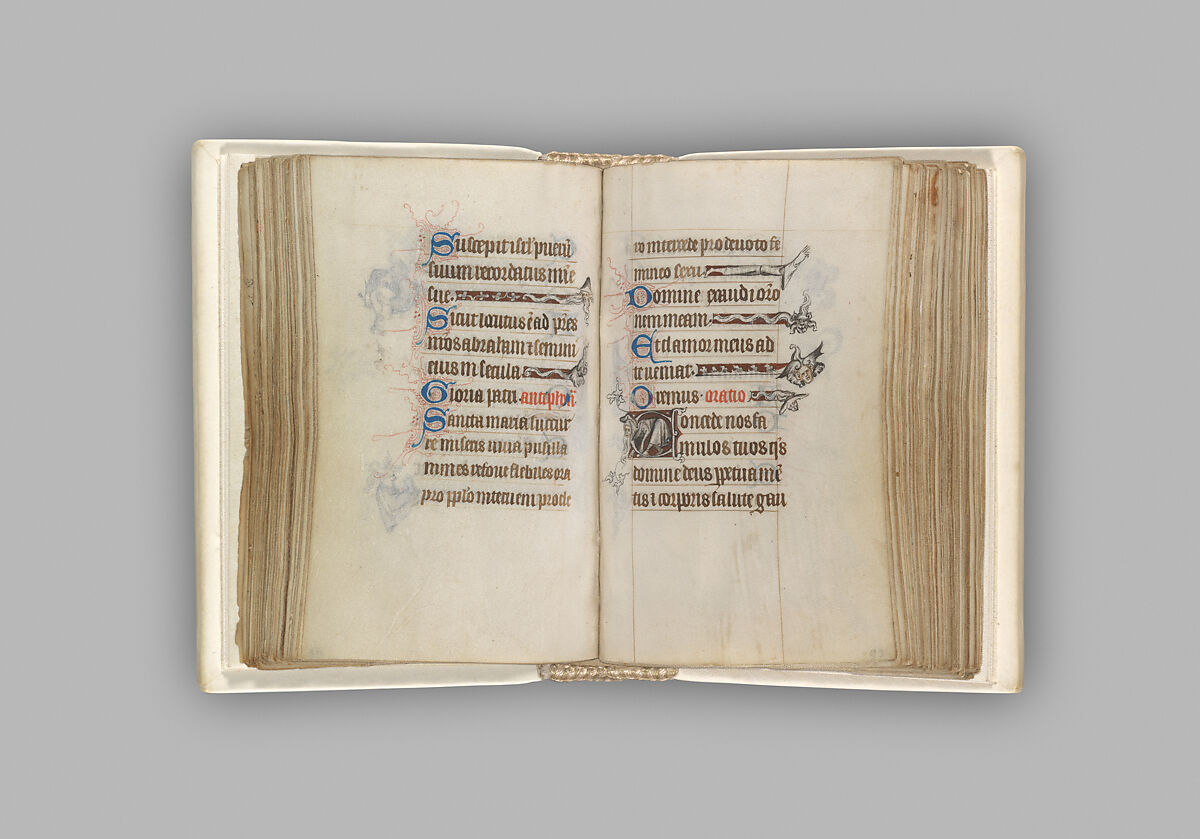 Suscepit isrl' pueru̅
suum recordatus mi̅e
sue.
Sicut locutus e̅ ad p̅res
n̅ros abraham ⁊ semini
eius in secula.
Gloria patri. antiphon̅
Sancta maria succur
re miseris iuua pusilla
nimes refoue flebiles ora
pro pp̅lo interueni pro cle
ro intercede pro deuoto fe
mineo sexu.
Domine exaudi or̅o
nem meam.
Et clamor meus ad
te ueniat.
Oremus. oratio
Concede nos fa
mulos tuos q̅s
domine deus p̱petua me̅
tis ⁊ corporis salute gau